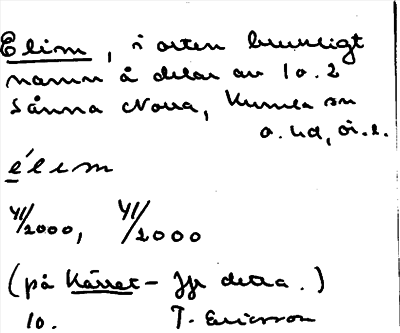 Elim, i orten brukligt
namn å delar av 1a. 2
Sånna Norra, Kumla sn
o. hd, Ö. l.
élim
YI/2000, YI/2000
(på Kärret - Jfr detta.)
10. T. Ericsson